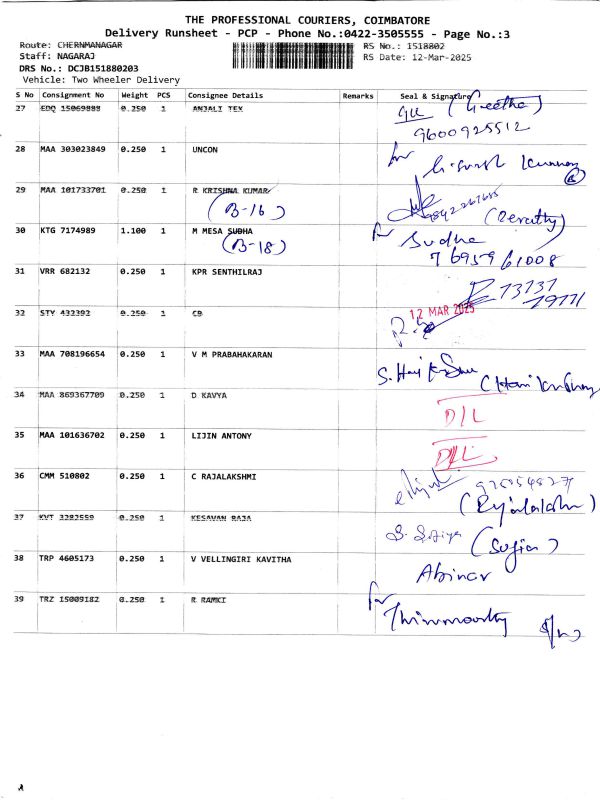 THE PROFESSIONAL COURIERS, COIMBATORE
Delivery Runsheet - PCP - Phone No.:0422-3505555 - Page No.:3
Route: CHERNMANAGAR RS No.: 1518802
Staff: NAGARAJ RS Date: 12-Mar-2025
DRS No.: DCJB151880203
Vehicle: Two Wheeler Delivery
S No Consignment No Weight PCS Consignee Details Remarks Seal & Signature
27 EDQ 15069889 0.250 1 ANJALI TEX (Geetha)
9600925512
28 MAA 303023849 0.250 1 UNCON for
29 MAA 101733701 0.250 1 R KRISHNA KUMAR
(B-16) 9842267655
30 KTG 7174989 1.100 1 M MESA SUDHA for Sudha
(B-18) 7695961008
31 VRR 682132 0.250 1 KPR SENTHILRAJ
73737
32 STY 432392 0.250 1 CB 12 MAR 2025
33 MAA 708196654 0.250 1 V M PRABAHAKARAN
34 MAA 869367709 0.250 1 D KAVYA D/L
35 MAA 101636702 0.250 1 LIJIN ANTONY D/L
36 CMM 510802 0.250 1 C RAJALAKSHMI
37 KVT 3282559 0.250 1 KESAVAN RAJA
38 TRP 4605173 0.250 1 V VELLINGIRI KAVITHA Abinav
39 TRZ 15009182 0.250 1 R RAMKI for